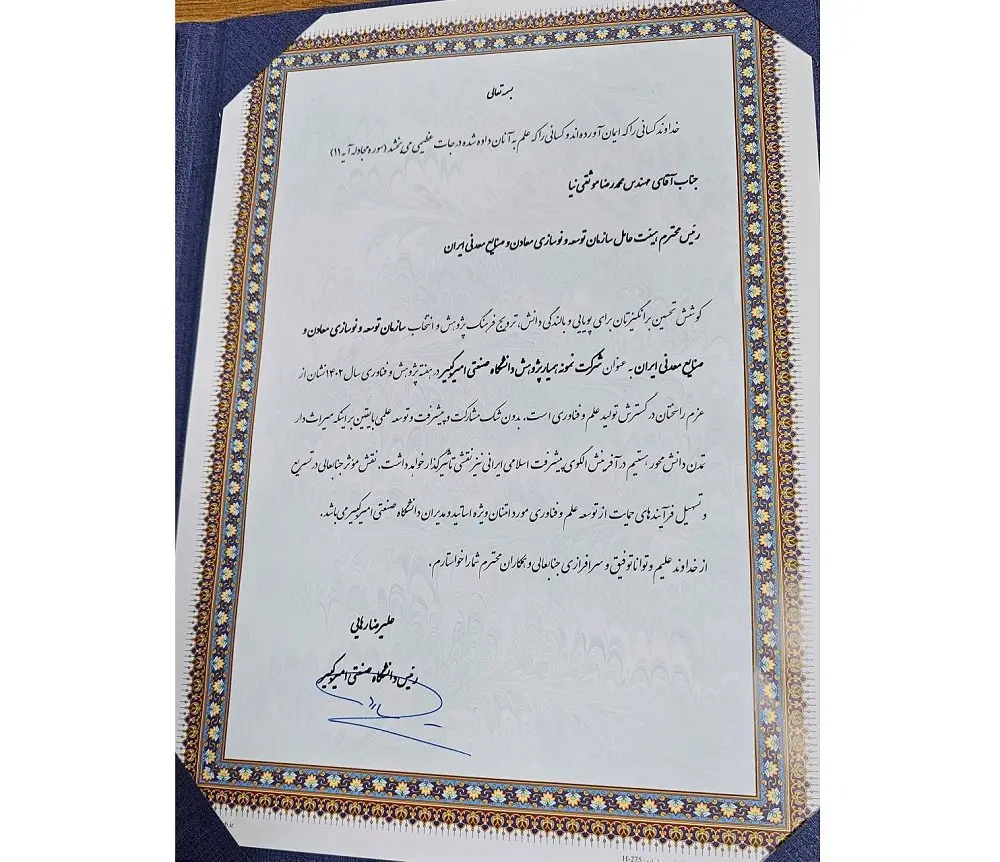 بسمه تعالی
خداوند کسانی را که ایمان آورده اند و کسانی را که علم به آنان داده شده درجات عظیمی می بخشد (سوره مجادله آیه ۱۱)
جناب آقای مهندس محمدرضا موثقی نیا
رئیس محترم هیئت عامل سازمان توسعه و نوسازی معادن و صنایع معدنی ایران
کوشش تحسین برانگیزتان برای پویایی و بالندگی دانش، ترویج فرهنگ پژوهش و انتخاب سازمان توسعه و نوسازی معادن و
صنایع معدنی ایران به عنوان شرکت نمونه همیار پژوهش دانشگاه صنعتی امیرکبیر در هفته پژوهش و فناوری سال ۱۴۰۲ نشان از
عزم راسختان در گسترش تولید علم و فناوری است. بدون شک مشارکت و پیشرفت و توسعه علمی با یقین بر اینکه میراث دار
تمدن دانش محور هستیم در آفرینش الگوی پیشرفت اسلامی ایرانی نیز نقشی تاثیرگذار خواهد داشت. نقش مؤثر جنابعالی در تسریع
و تسهیل فرآیندهای حمایت از توسعه علم و فناوری مورد امتنان ویژه اساتید و مدیران دانشگاه صنعتی امیرکبیر می باشد.
از خداوند علیم و توانا توفیق و سرافرازی جنابعالی و همکاران محترم شما را خواستارم.
علیرضا رهایی
رئیس دانشگاه صنعتی امیرکبیر
H-275